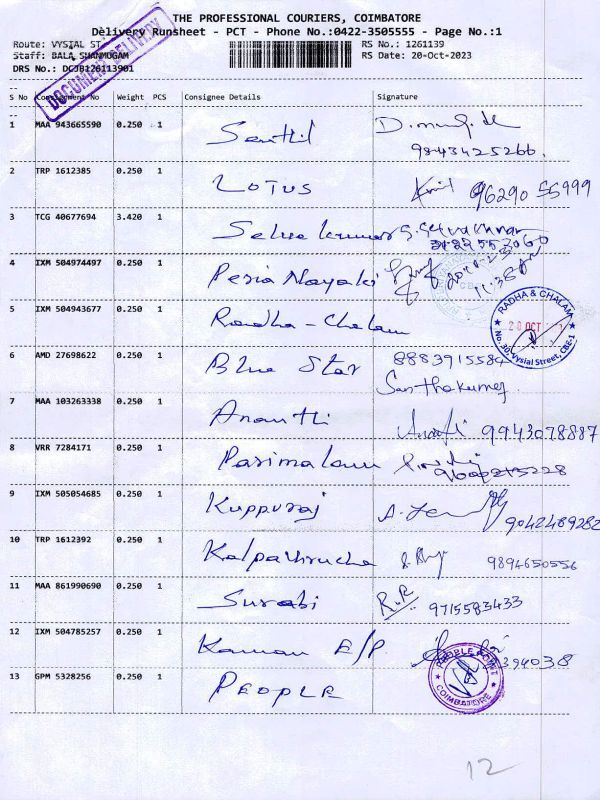 THE PROFESSIONAL COURIERS, COIMBATORE
Delivery Runsheet - PCT - Phone No.:0422-3505555 - Page No.:1
Route: VYSIAL ST
RS No.: 1261139
Staff: BALA SHANMUGAM
RS Date: 20-Oct-2023
DRS No.: DCJB126113901
DOCUMENT DELIVERY
S No Consignment No Weight PCS Consignee Details Signature
1 MAA 943665590 0.250 1 Senthil
9843425266.
2 TRP 1612385 0.250 1 LOTUS 96290 55999
3 TCG 40677694 3.420 1 Selva kumar S. Selvakumar
4 IXM 504974497 0.250 1 Peria Nayaki
5 IXM 504943677 0.250 1 Radha - Chalam
RADHA & CHALAM
20 OCT
No. 30, Vysial Street, CBE-1
6 AMD 27698622 0.250 1 Blue Star 8883915584
Santhakumar
7 MAA 103263338 0.250 1 Ananthi 9943078887
8 VRR 7284171 0.250 1 Parimalam
9 IXM 505054685 0.250 1 Kuppuraj
9042489282
10 TRP 1612392 0.250 1 Kalpavirucha 9894650556
11 MAA 861990690 0.250 1 Surabi R.R 9715583433
12 IXM 504785257 0.250 1 Kannan E/P
394038
13 GPM 5328256 0.250 1 PEOPLE
PEOPLE POINT
COIMBATORE
12